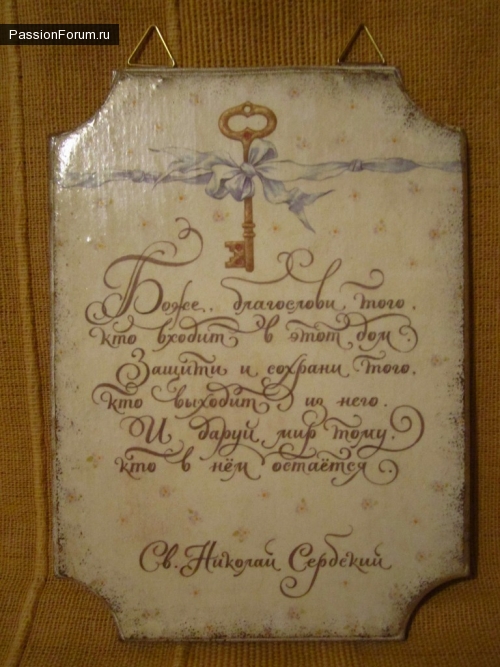 PassionForum.ru
Боже, благослови того,
кто входит в этот дом.
Защити и сохрани того,
кто выходит из него.
И даруй мир тому,
кто в нём остаётся
Св. Николай Сербский